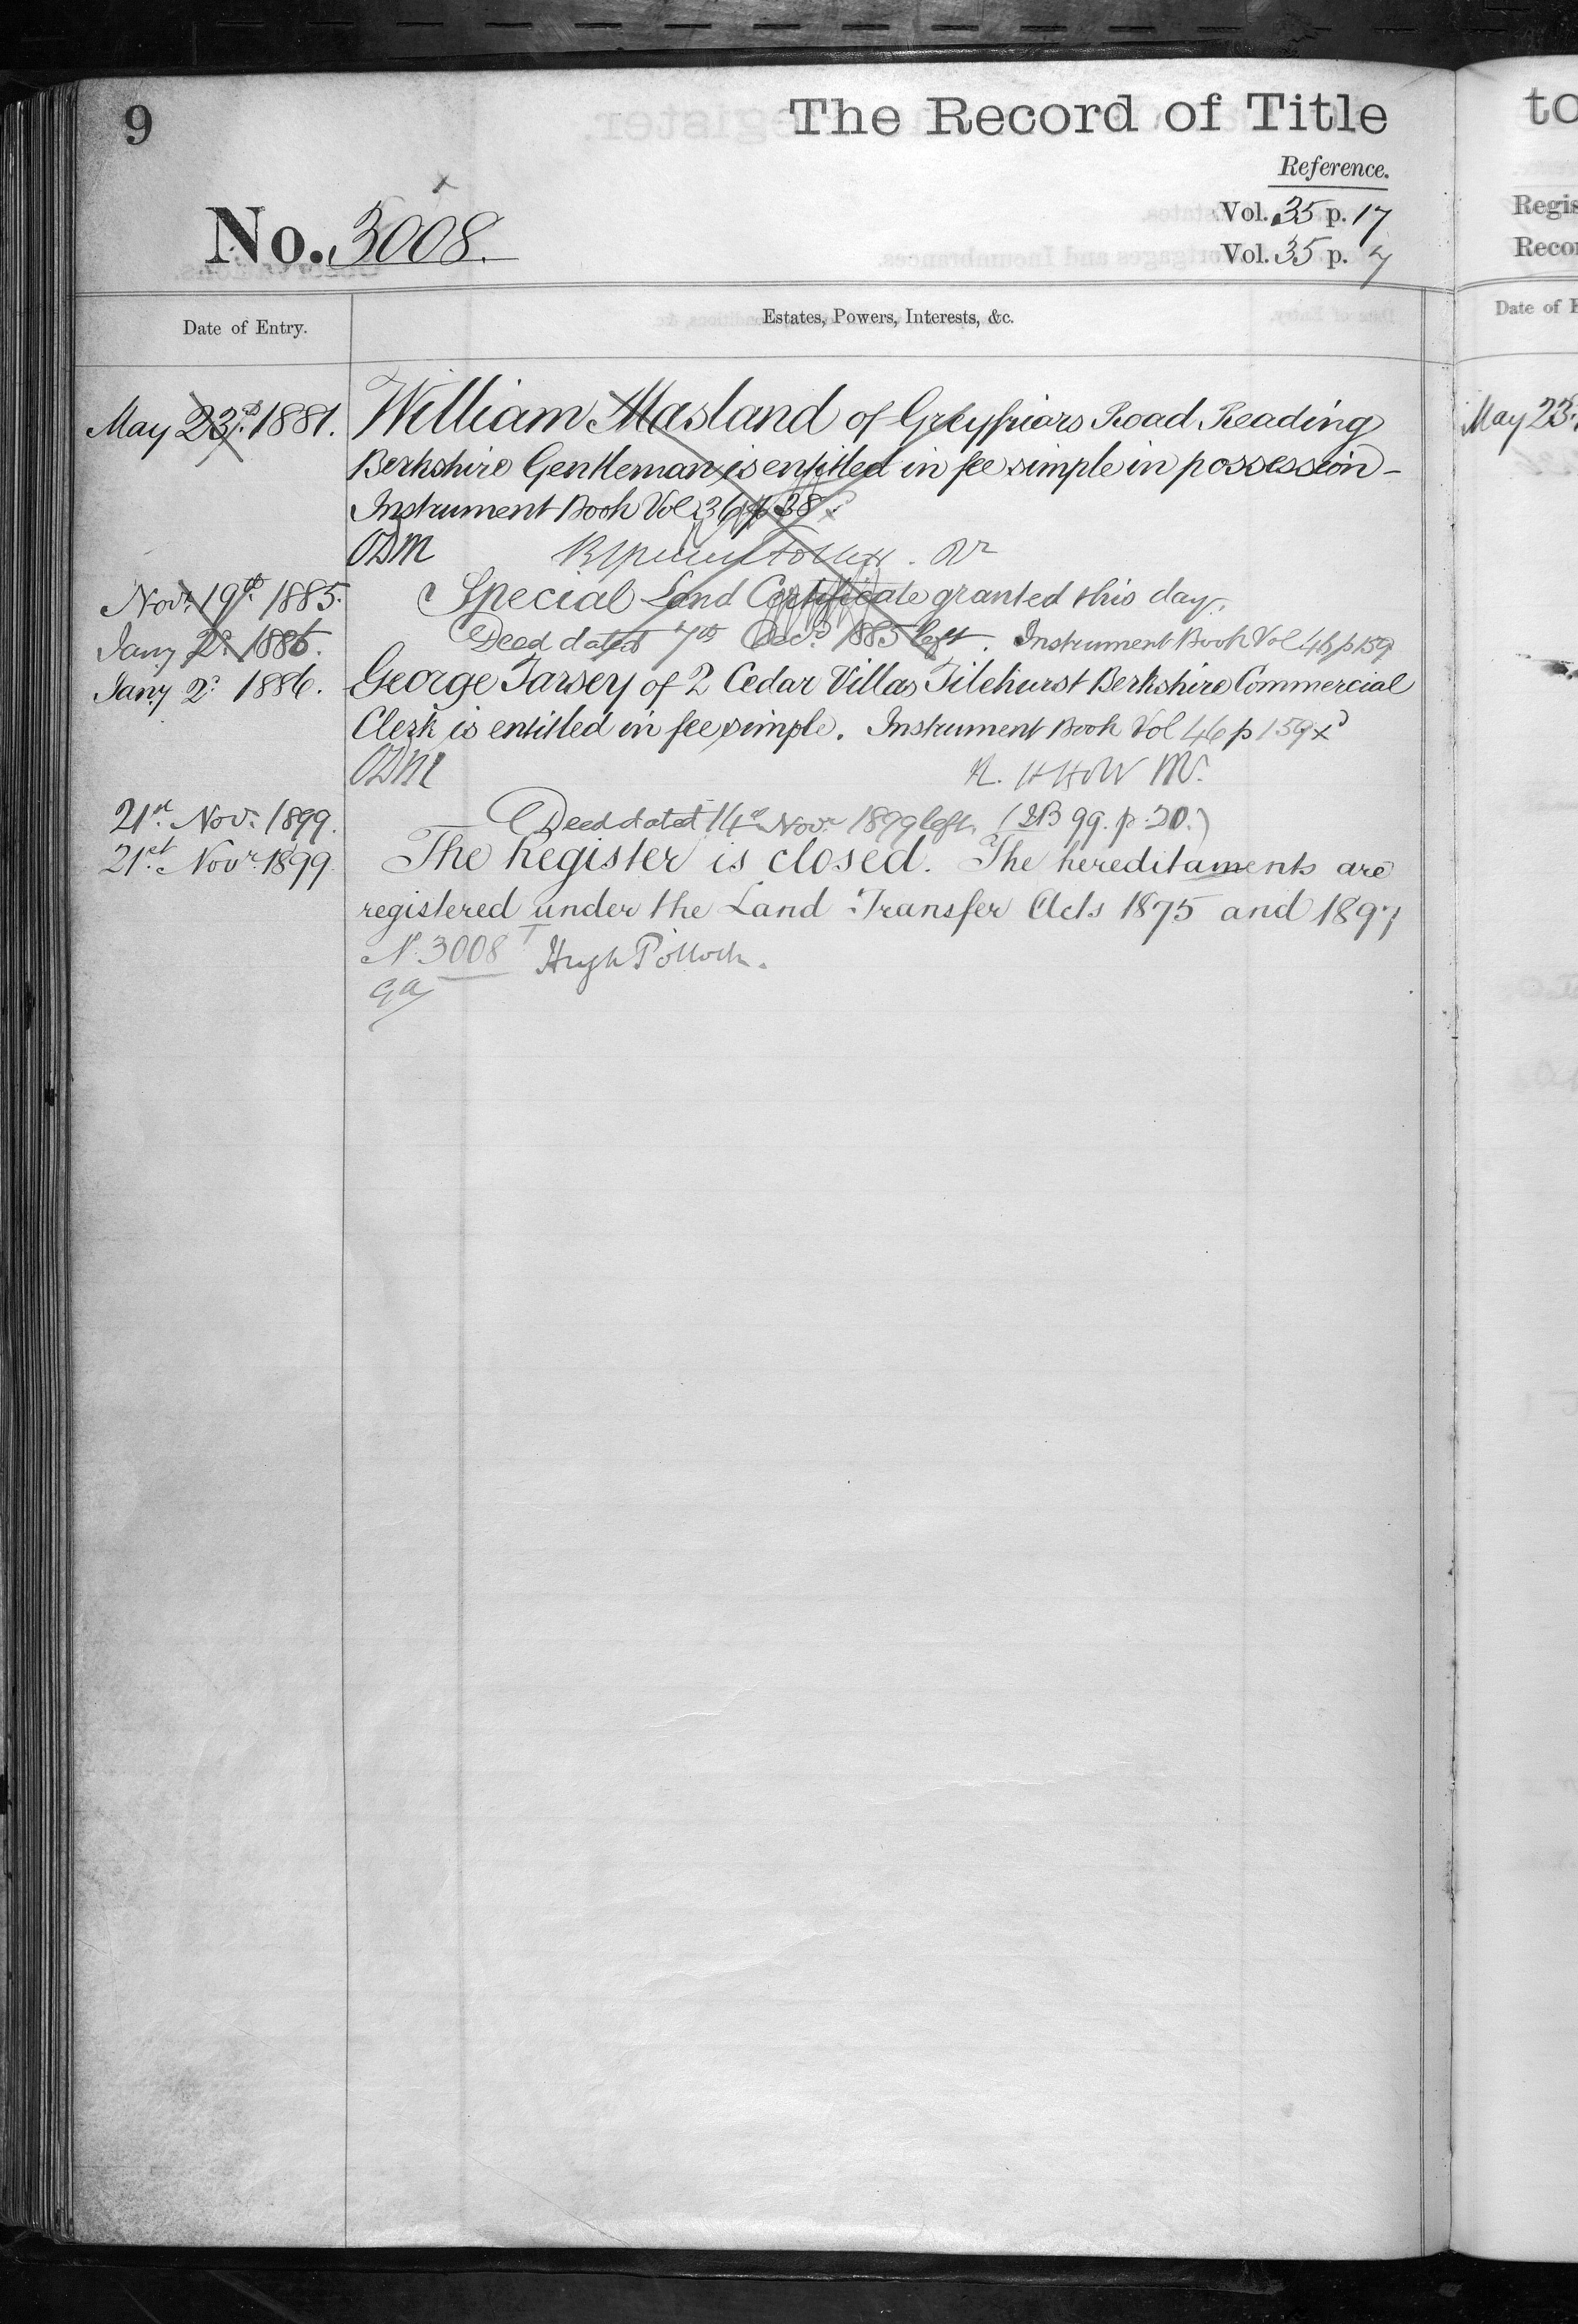 9
The Record of Title
Reference.
No. 3008.
Vol. 35 p. 17
Vol. 35 p. 7
Date of Entry.
Estates, Powers, Interests, &c.
May 23d. 1881.
William Masland of Greyfriars Road Reading
Berkshire Gentleman is entitled in fee simple in possession -
Instrument Book Vol 36 p 38
ODM
Novr. 19th. 1885.
Special Land Certificate granted this day.
Jany 2d. 1886.
Deed dated 7th Decr. 1885 left. Instrument Book Vol 46 p 159
Jany 2d. 1886.
George Tarsey of 2 Cedar Villas Tilehurst Berkshire Commercial
Clerk is entitled in fee simple. Instrument Book Vol 46 p 159 x
ODM
21st. Nov. 1899.
Deed dated 14th Novr. 1899 left. (IB 99. p. 20.)
21st. Novr. 1899
The Register is closed. The hereditaments are
registered under the Land Transfer Acts 1875 and 1897
No. 3008 Hugh Pollock.
to
Regis
Recor
Date of E
May 23